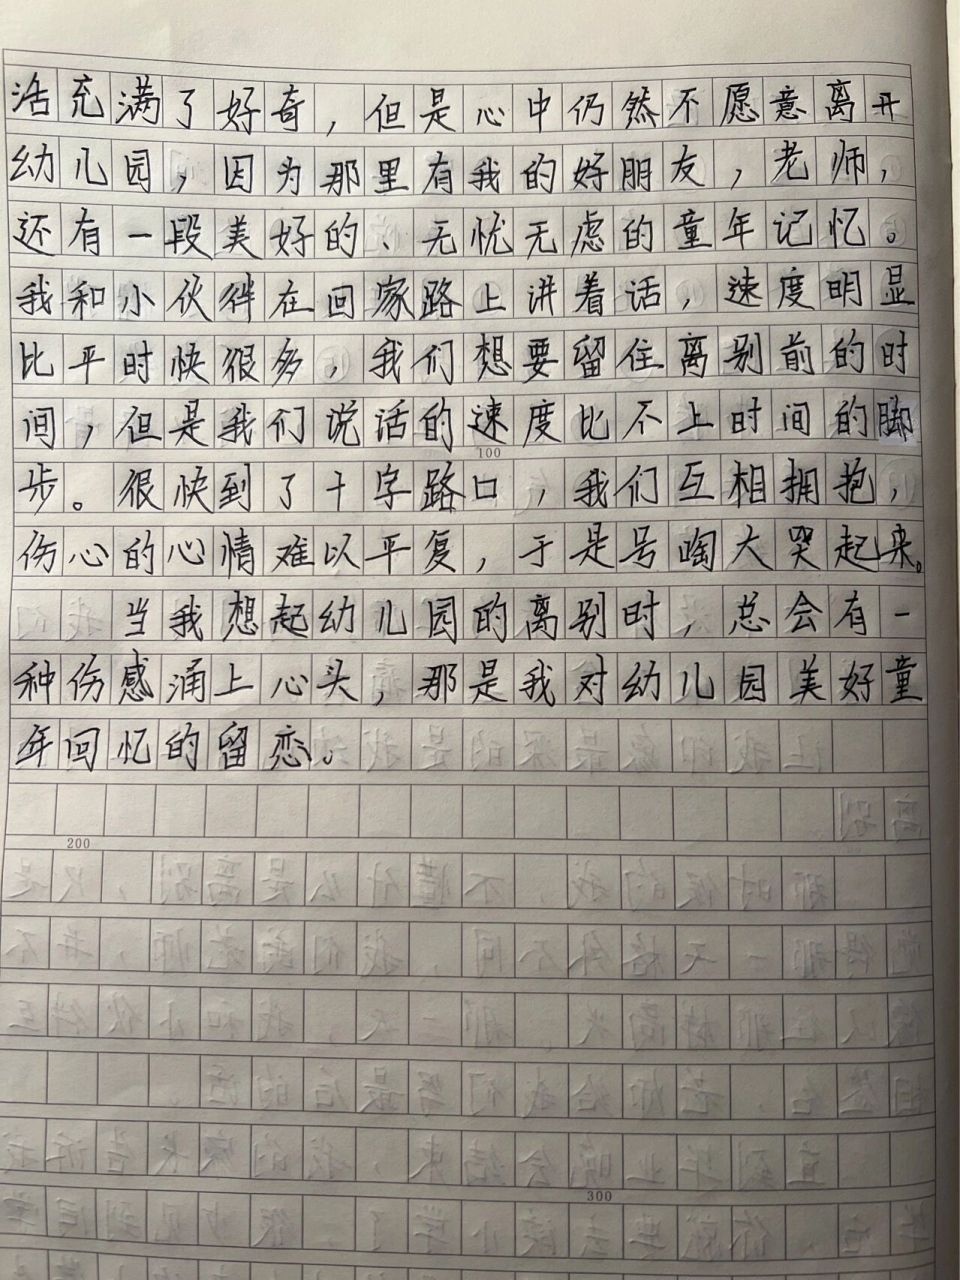 活充满了好奇,但是心中仍然不愿意离开
幼儿园,因为那里有我的好朋友,老师,
还有一段美好的、无忧无虑的童年记忆。
我和小伙伴在回家路上讲着话,速度明显
比平时快很多,我们想要留住离别前的时
间,但是我们说话的速度比不上时间的脚
100
步。很快到了十字路口,我们互相拥抱,
伤心的心情难以平复,于是号啕大哭起来。
当我想起幼儿园的离别时,总会有一
种伤感涌上心头,那是我对幼儿园美好童
年回忆的留恋。
200
300